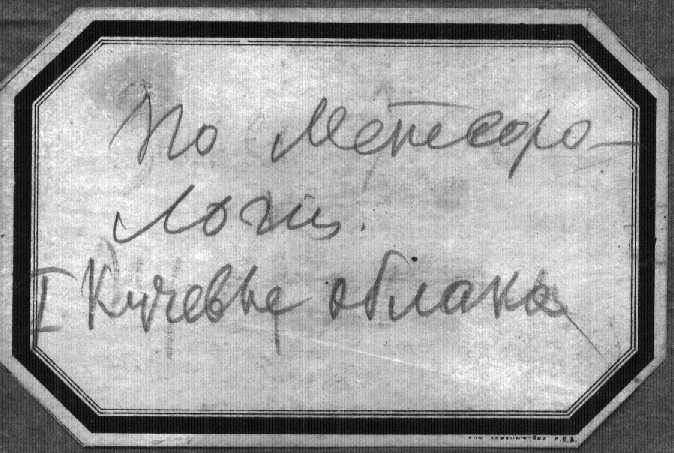 По Метеоро-
логии.
I Кучевые облака